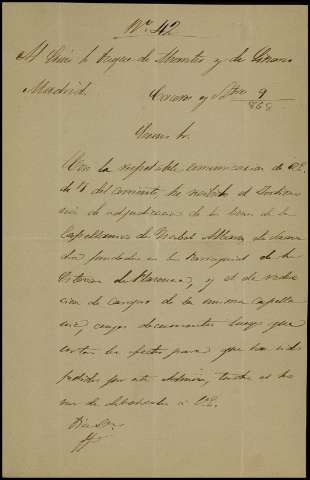 Nº 42
Al Exmo Sr Duque de Montes y de
Madrid. Caceres y Sbre 9
865
Exmo Sr.
Con la respetable comunicacion de V.E.
de 4 del corriente, he recibido el
de adjudicacion de los bienes de la
Capellania de Isabel
fundada en la Parroquial de la
Vitoria de Plasencia, y el de reden
cion de cargas de la misma Capella
nia, cuyos documentos luego que
surtan los efectos para que han sido
pedidos por esta Admon, tendré el ho
nor de debolverlos a V.E.
Dios &